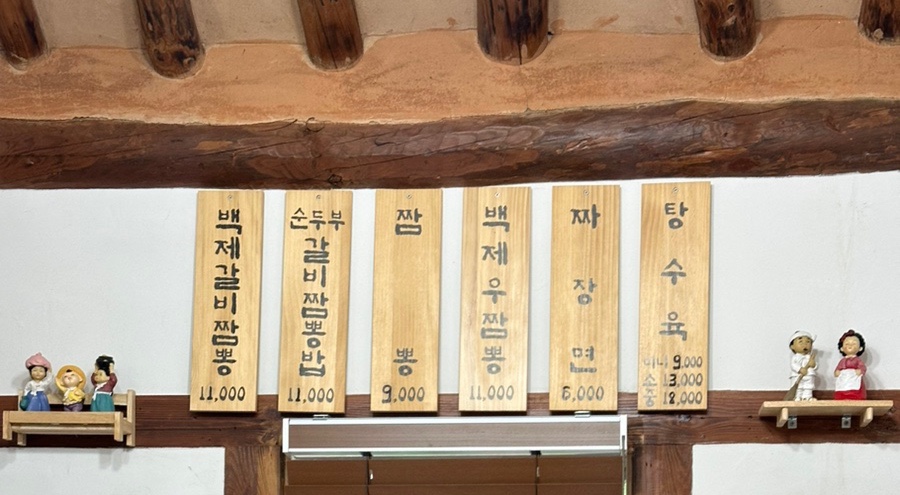 백제갈비짬뽕
11,000
순두부
갈비짬뽕밥
11,000
짬뽕
9,000
백제우짬뽕
11,000
짜장면
6,000
탕수육
미니 9,000
소 13,000
중 18,000